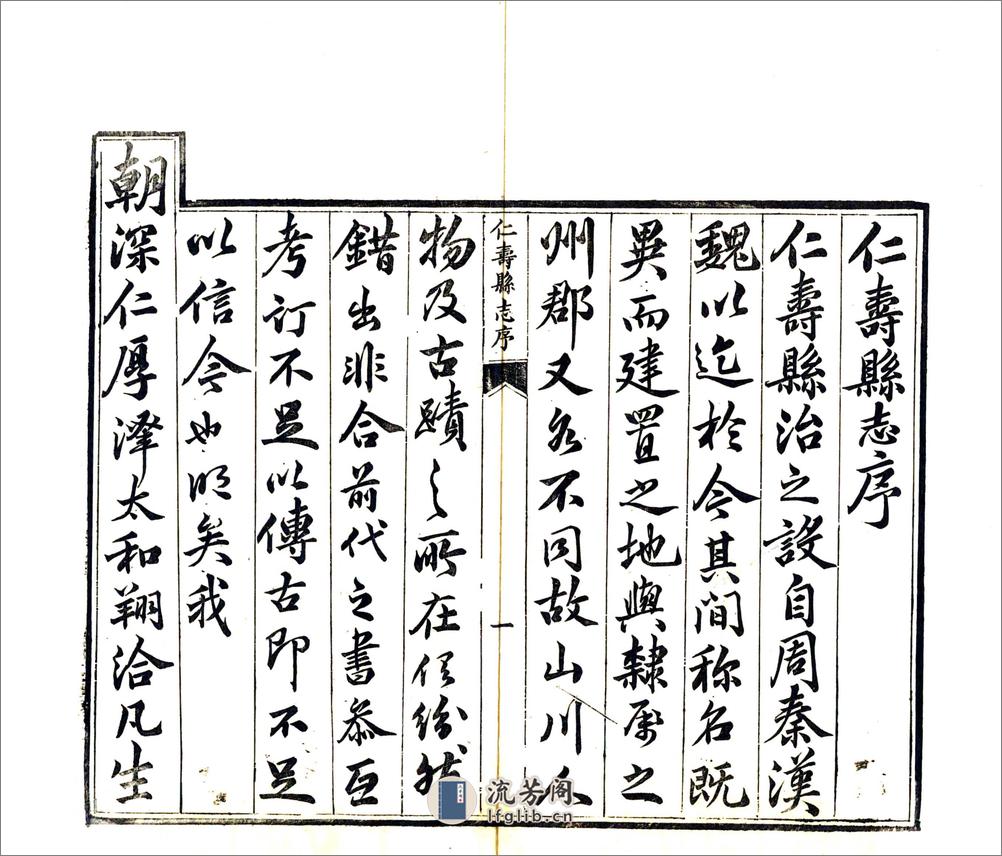 仁壽縣志序
仁壽縣治之設自周秦漢
魏以迄於今其間称名既
異而建置之地與隸屬之
州郡又各不同故山川人
仁壽縣志序
一
物及古蹟之所在俱紛然
錯出非合前代之書叅互
考訂不足以傳古即不足
以信今也明矣我
朝深仁厚澤太和翔洽凡生
流芳阁
lfglib.cn